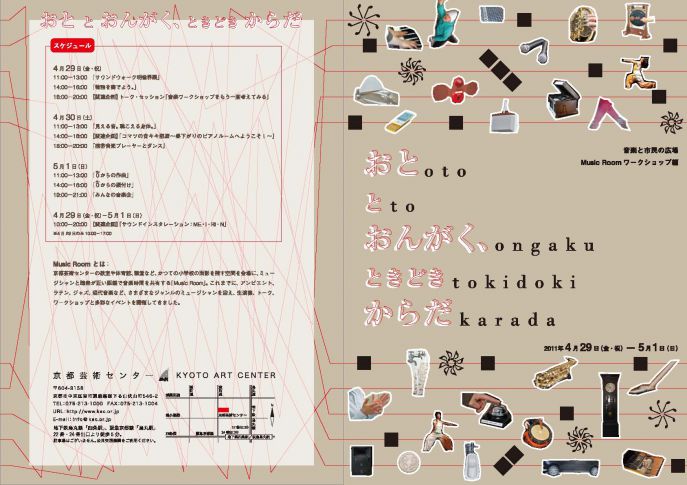 おと と おんがく、ときどき からだ
スケジュール
4月29日（金・祝）
11:00−13:00 「サウンドウォーク明倫界隈」
14:00−16:00 「物語を奏でよう。」
18:00−20:00 【関連企画】トーク・セッション「音楽ワークショップをもう一度考えてみる」
4月30日（土）
11:00−13:00 「見える音。聴こえる身体。」
14:00−16:00
18:00−20:00 「携帯音楽プレーヤーとダンス」
5月1日（日）
11:00−13:00 「0からの作曲」
14:00−16:00 「0からの振付け」
19:00−21:00 「みんなの音楽会」
4月29日（金・祝）−5月1日（日）
10:00−20:00 【関連企画】「サウンドインスタレーション：ME・I・RI・N」
Music Room とは：
京都芸術センターの教室や体育館、講堂など、かつての小学校の面影を残す空間を会場に、ミュー
ジシャンと聴衆が近い距離で音楽時間を共有する「Music Room」。これまでに、アンビエント、
ラテン、ジャズ、現代音楽など、さまざまなジャンルのミュージシャンを迎え、生演奏、トーク、
ワークショップと多彩なイベントを開催してきました。
京都芸術センター KYOTO ART CENTER
〒604-8156
京都市中京区室町通蛸薬師下る山伏山町546-2
TEL:075-213-1000 FAX:075-213-1004
URL: http://www.kac.or.jp
E-mail: info@kac.or.jp
地下鉄烏丸線「四条駅」、阪急京都線「烏丸駅」
22番・24番出口より徒歩5分。
京都芸術センター
音楽と市民の広場
Music Room ワークショップ編
おと oto
と to
おんがく、ongaku
ときどき tokidoki
からだ karada
2011年 4月29日（金・祝）— 5月1日（日）